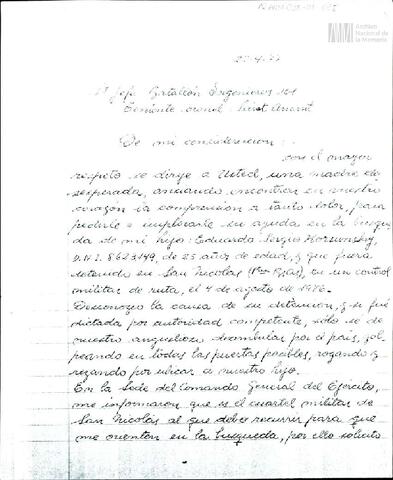 Archivo
Nacional de
la Memoria
Al Jefe Batallón Ingenieros 101
Teniente coronel
De mi consideración:
con el mayor
respeto se dirige a Usted, una madre de-
sesperada, ansiando encontrar en vuestro
corazón la comprensión a tanto dolor, para
pedirle e implorarle su ayuda en la búsque
da de mi hijo: Eduardo Sergio
D.N.I. 8623449, de 25 años de edad, y que fuera
detenido en San Nicolás (Pcia Bs As), en un control
militar de ruta, el 4 de agosto de 1976.
Desconozco la causa de su detención, y si fué
dictada por autoridad competente, sólo sé de
nuestro angustioso deambular por el país, gol
peando en todas las puertas posibles, rogando y
rezando por ubicar a nuestro hijo.
En la Sede del Comando General del Ejército,
me informaron que es el cuartel militar de
San Nicolás al que debo recurrir para que
me orienten en la búsqueda, por ello solicito